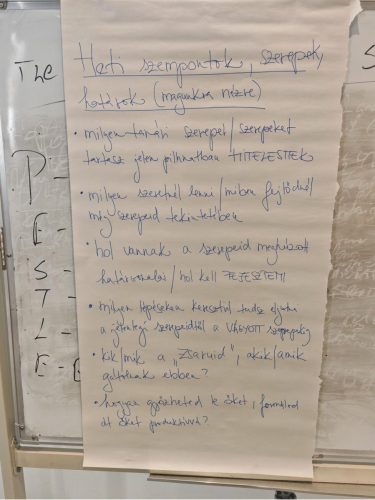 THE
P-
E-
S-
T-
L-
E-
S
Heti szempontok, szerepek,
határok (magunkra nézve)
• milyen tanári szerepet/szerepeket
tartasz jelen pillanatban HITELESNEK
• milyen szeretnél lenni/miben fejlődnél
még szerepeid tekintetében
• hol vannak a szerepeid meghúzott
határvonalai/hol kell FEJLESZTENI
• milyen lépéseken keresztül tudsz eljutni
a jelenlegi szerepeidtől a VÁGYOTT szerepekig
• kik/mik a "Zsaruid", akik/amik
gátolnak ebben?
• hogyan győzheted le őket, formálod
át őket produktívvá?